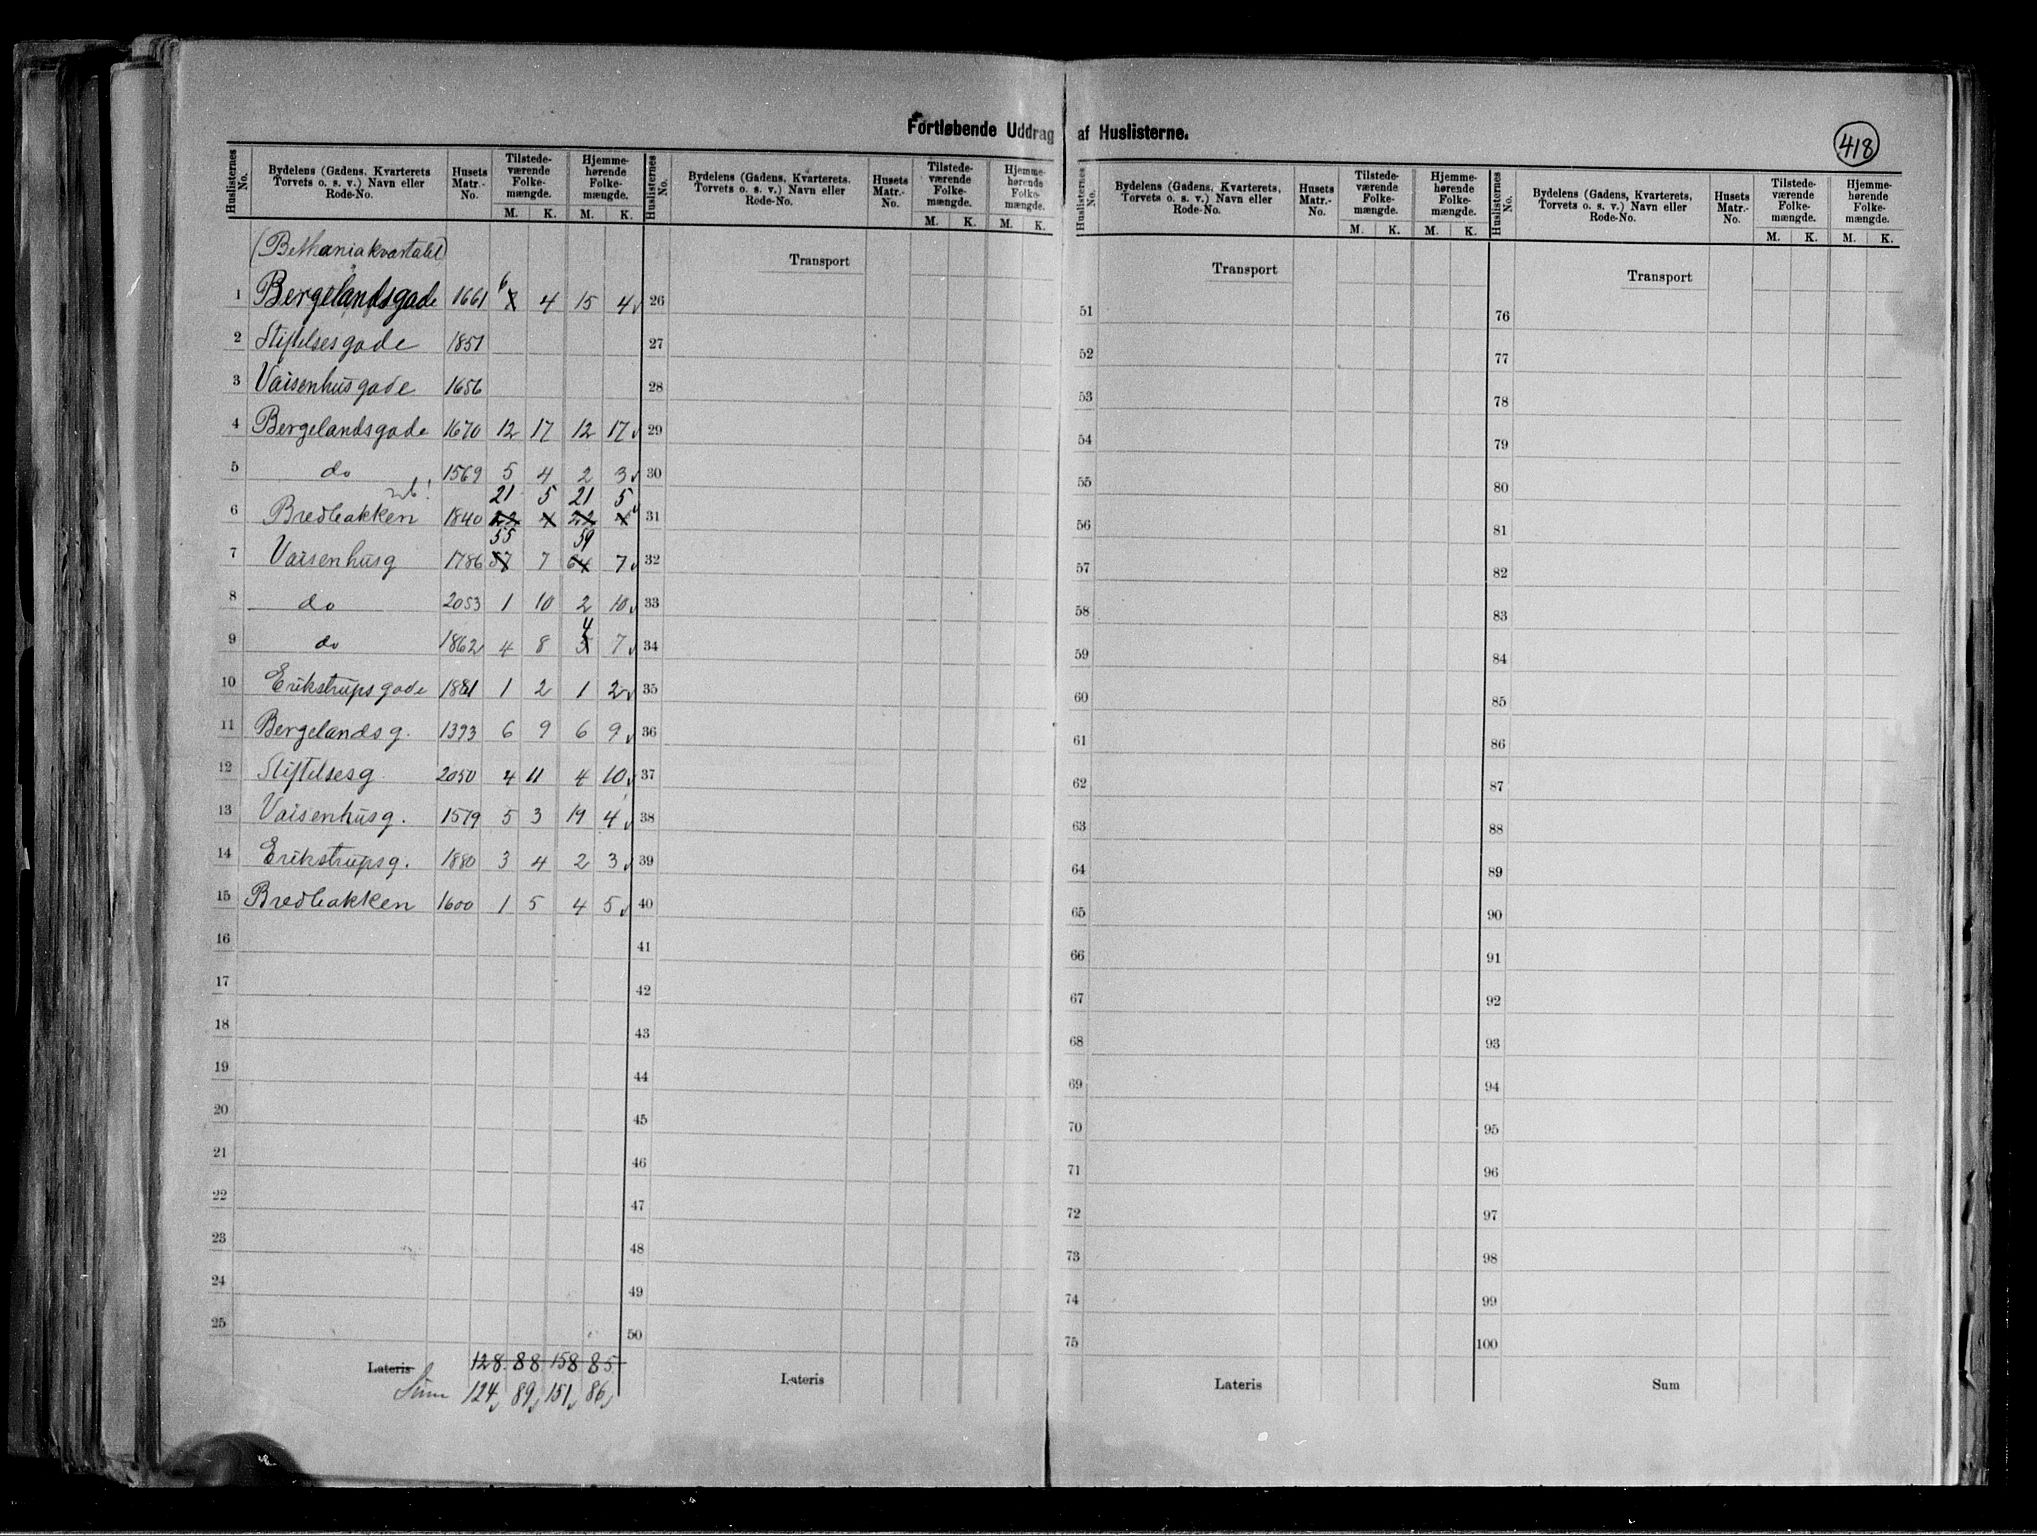 Fortløbende Uddrag af Huslisterne.
418
Huslisternes No. | Bydelens (Gadens, Kvarterets Torvets o. s. v.) Navn eller Rode-No. | Husets Matr.-No. | Tilstede-værende Folke-mængde. M. K. | Hjemme-hørende Folke-mængde. M. K.
Huslisternes No. | Bydelens (Gadens, Kvarterets, Torvets o. s. v.) Navn eller Rode-No. | Husets Matr.-No. | Tilstede-værende Folke-mængde. M. K. | Hjemme-hørende Folke-mængde. M. K.
Huslisternes No. | Bydelens (Gadens, Kvarterets, Torvets o. s. v.) Navn eller Rode-No. | Husets Matr.-No. | Tilstede-værende Folke-mængde. M. K. | Hjemme-hørende Folke-mængde. M. K.
Huslisternes No. | Bydelens (Gadens, Kvarterets, Torvets o. s. v.) Navn eller Rode-No. | Husets Matr.-No. | Tilstede-værende Folke-mængde. M. K. | Hjemme-hørende Folke-mængde. M. K.
(Bethaniakvartalet)
1 Bergelandsgade 1661 6 4 15 4
2 Stiftelsesgade 1851
3 Vaisenhusgade 1656
4 Bergelandsgade 1670 12 17 12 17
5 do 1569 5 4 2 3
21 5 21 5
6 Bredbakken 1840 22 4 22 4
55 59
7 Vaisenhusg 1786 57 7 64 7
8 do 2053 1 10 2 10
4
9 do 1862 4 8 5 7
10 Erikstrupsgade 1881 1 2 1 2
11 Bergelandsg. 1393 6 9 6 9
12 Stiftelsesg 2050 4 11 4 10
13 Vaisenhusg. 1579 5 3 19 4
14 Erikstrupsg. 1880 3 4 2 3
15 Bredbakken 1600 1 5 4 5
16
17
18
19
20
21
22
23
24
25
Lateris 128 88 158 85
Sum 124 89 151 86
Transport
26
27
28
29
30
31
32
33
34
35
36
37
38
39
40
41
42
43
44
45
46
47
48
49
50
Lateris
Transport
51
52
53
54
55
56
57
58
59
60
61
62
63
64
65
66
67
68
69
70
71
72
73
74
75
Lateris
Transport
76
77
78
79
80
81
82
83
84
85
86
87
88
89
90
91
92
93
94
95
96
97
98
99
100
Sum